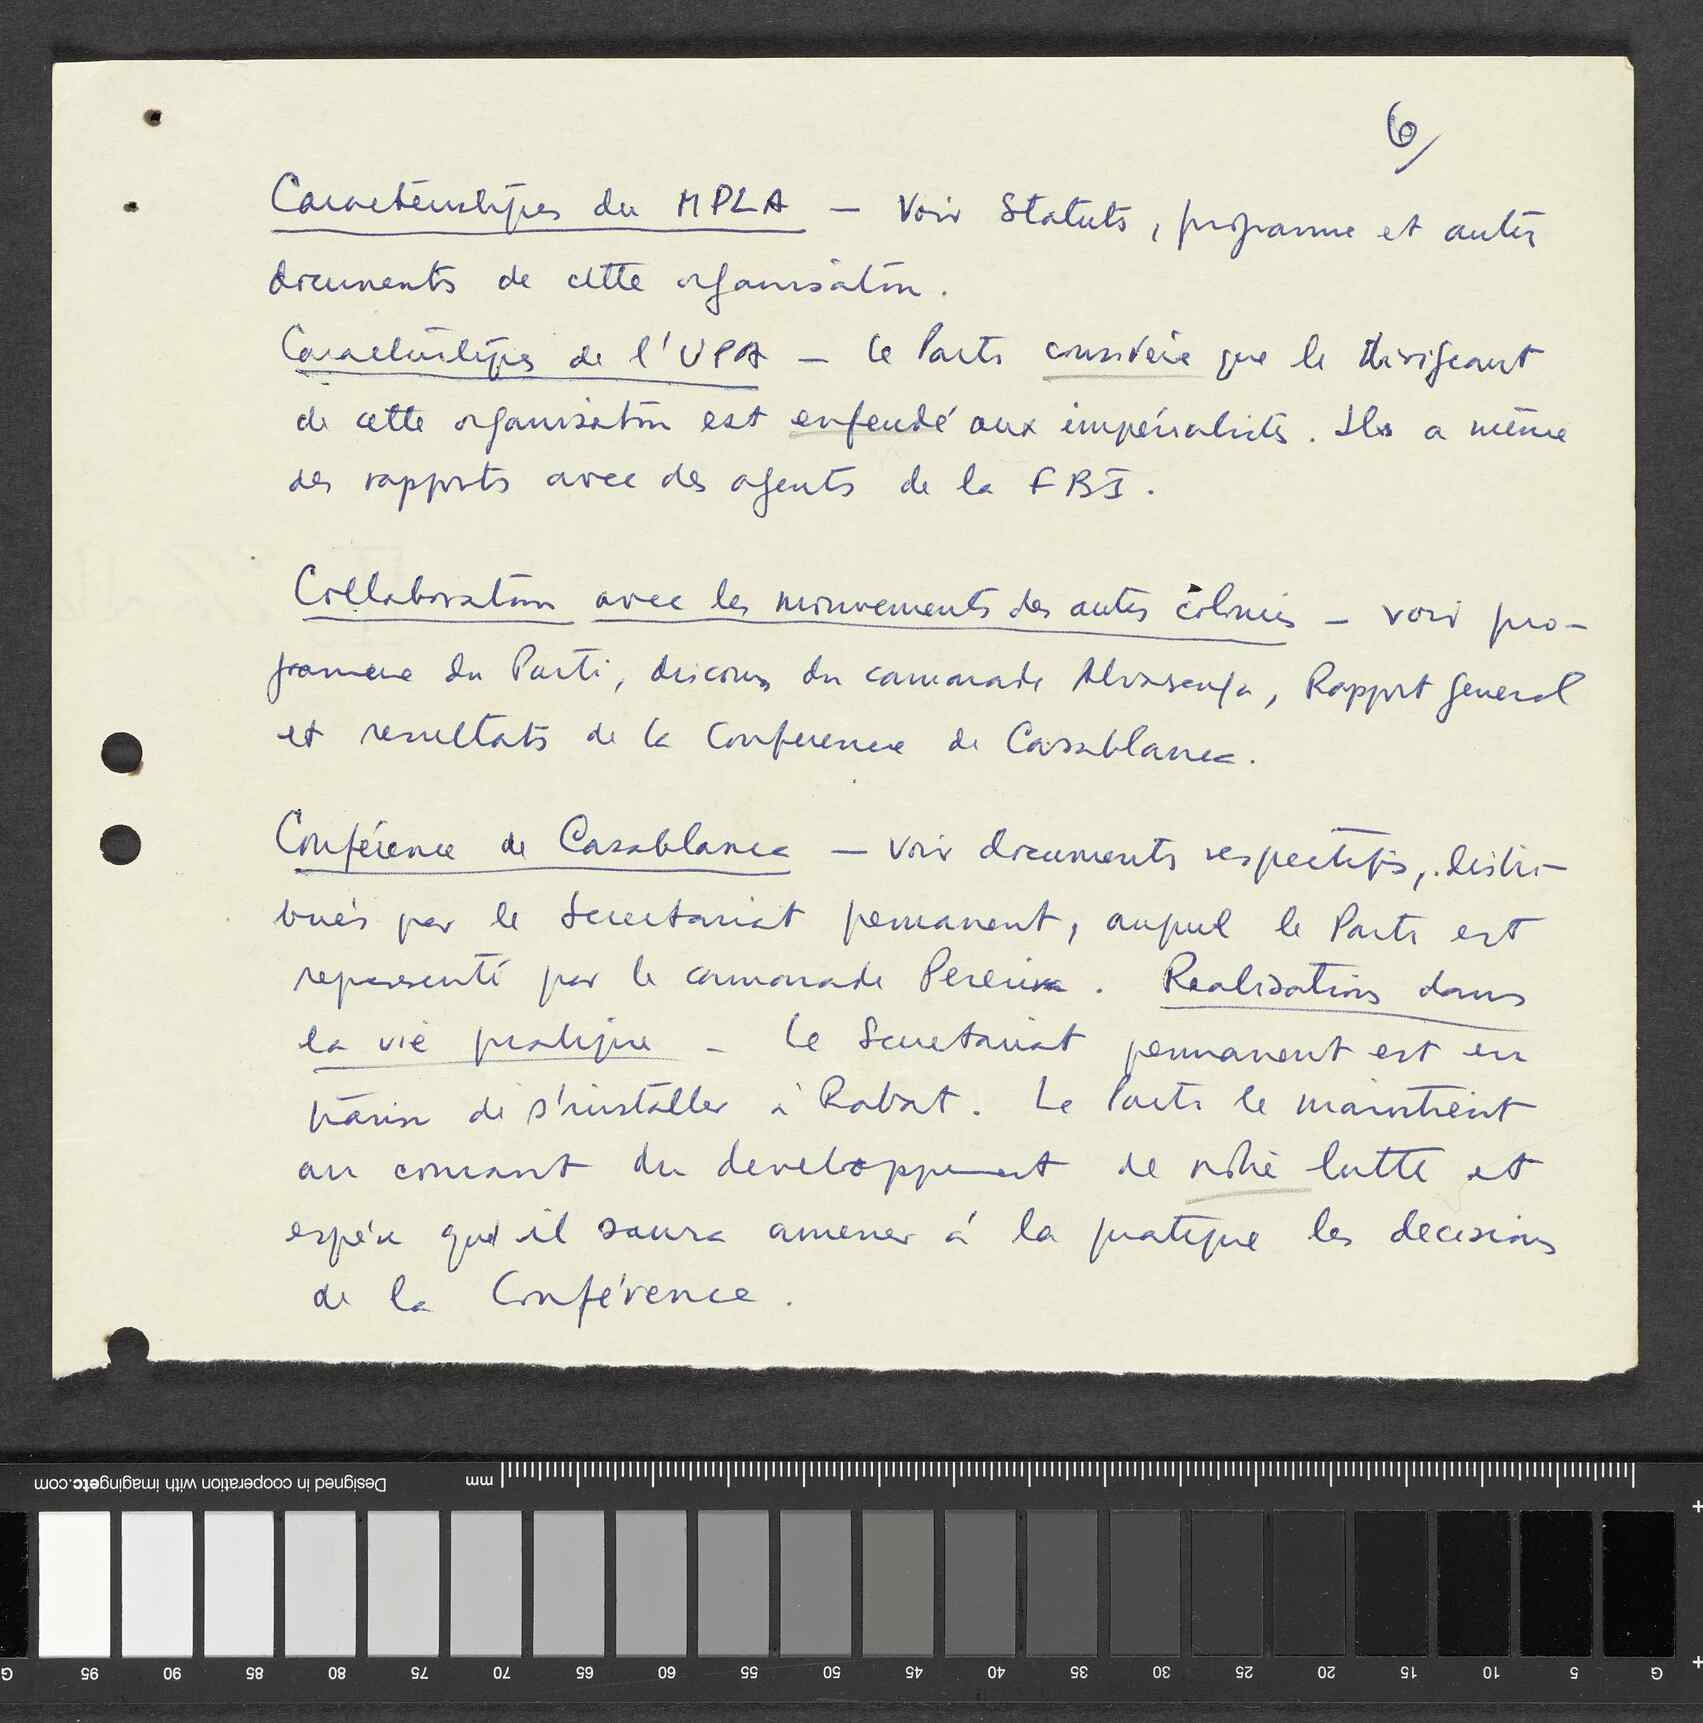 6/
Caractéristiques du MPLA — Voir Statuts, programme et autres
documents de cette organisation.
Caractéristiques de l'UPA — Le Parti considère que le dirigeant
de cette organisation est enfeudé aux impérialistes. Il a même
des rapports avec des agents de la FBI.
Collaboration avec les mouvements des autres colonies — voir pro-
gramme du Parti, discours du camarade Alvarenga, Rapport general
et resultats de la Conference de Casablanca.
Conférence de Casablanca — Voir documents respectifs, distri-
bués par le Secretariat permanent, auquel le Parti est
representé par le camarade Pereira. Realisations dans
la vie pratique — Le Secretariat permanent est en
train de s'installer à Rabat. Le Parti le maintient
au courant du developpement de notre lutte et
espère que il saura amener à la pratique les decisions
de la Conférence.
mm
Designed in cooperation with imagingetc.com
G 95 90 85 80 75 70 65 60 55 50 45 40 35 30 25 20 15 10 5 G